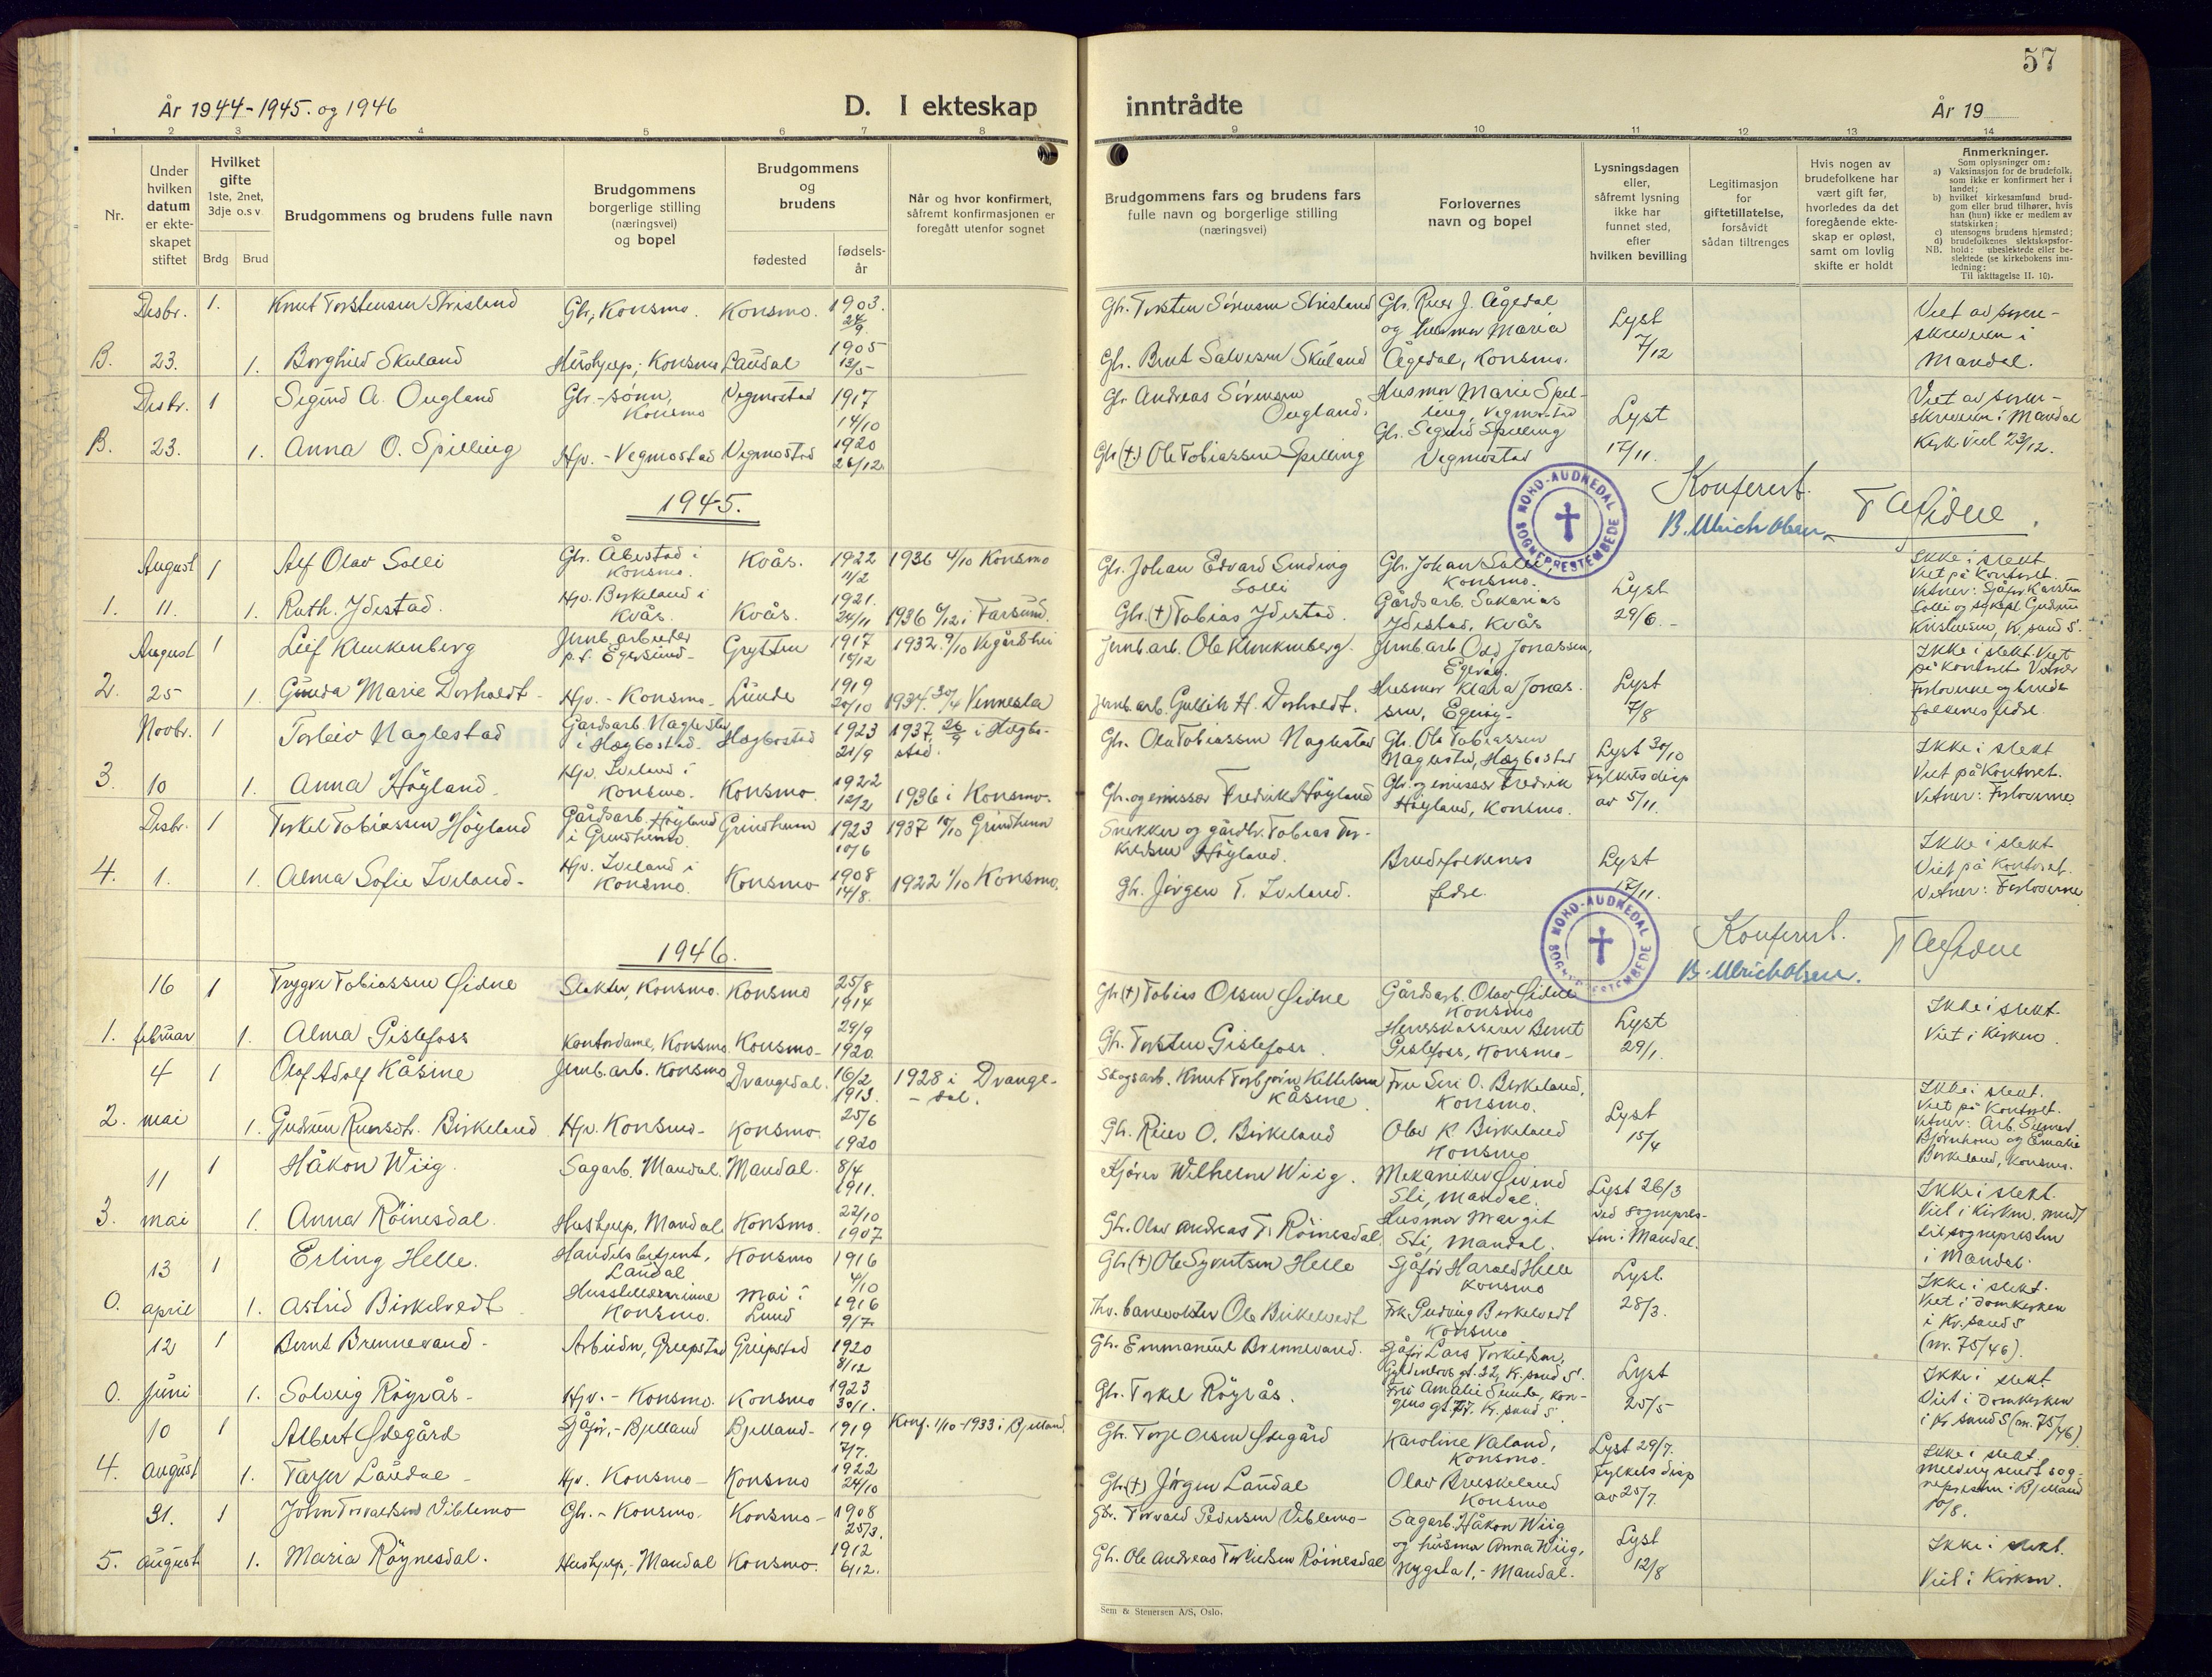 57
År 1944-1945. og 1946
D. I ekteskap
inntrådte
År 19
1 2 3 4 5 6 7 8
9 10 11 12 13 14
Nr.
Under
hvilken
datum
er ekte-
skapet
stiftet
Hvilket
gifte
1ste, 2net,
3dje o.s v
Brdg
Brud
Brudgommens og brudens fulle navn
Brudgommens
borgerlige stilling
(næringsvei)
og bopel
Brudgommens
og
brudens
fødested
fødsels-
år
Når og hvor konfirmert,
såfremt konfirmasjonen er
foregått utenfor sognet
Brudgommens fars og brudens fars
fulle navn og borgerlige stilling
(næringsvei)
Forlovernes
navn og bopel
Lysningsdagen
eller,
såfremt lysning
ikke har
funnet sted,
efter
hvilken bevilling
Legitimasjon
for
giftetillatelse,
forsåvidt
sådan tiltrenges
Hvis nogen av
brudefolkene har
vært gift før,
hvorledes da det
foregående ekte-
skap er opløst,
samt om lovlig
skifte er holdt
Anmerkninger.
Som oplysninger om:
a) Vaksinasjon for de brudefolk,
som ikke er konfirmert her i
landet;
b) hvilket kirkesamfund brud-
gom eller brud tilhører, hvis
han (hun) ikke er medlem av
statskirken;
c) utensogns brudens hjemsted;
d) brudefolkenes slektskapsfor-
hold: ubeslektede eller be-
slektede (se kirkebokens inn-
ledning:
NB. Til iakttagelse II. 10).
Desbr. 1. Knut Torstensen Strisland Gbr, Konsmo. Konsmo. 1903. 24/9. Gbr. Torsten Sørensen Strisland Gbr. Reier J. Ågedal
og husmor Maria Lyst Viet av soren-
skriveren i
B. 23. 1. Borghild Skuland Hushjelp, Konsmo Laudal 1905 13/5 Gbr. Bent Salvesen Skuland Ågedal, Konsmo. 7/12 Mandal.
Desbr. 1 Sigurd A. Ougland Gbr.-sønn, Konsmo Vegmostad 1917 14/10 Gbr Andreas Sørensen Ougland. Husmor Marie Spil-
ling, Vegmostad Lyst Viet av soren-
skriveren i Mandal
B. 23. 1. Anna O. Spilling Hjv. - Vegmostad Vegmostad 1920 26/12. Gbr (†) Ole Tobiassen Spilling Gbr. Sigurd Spilling
Vegmostad 17/11. Kirk. viet 23/12.
1945.
NORD-AUDNEDAL SOGNEPRESTEMBEDE
Konferert.
B. Ulrich Olsen.
T A Eidne
August 1 Alf Olav Solli Gbr. Åbestad i Konsmo. Kvås. 1922 4/2 1936 4/10 Konsmo Gbr. Johan Edvard Sinding Solli Gbr. Johan Solli
Konsmo. Lyst Ikke i slekt.
Viet på kontoret.
1. 11. 1. Ruth Ydestad. Hjv. Birkeland i Kvås. Kvås. 1921. 24/11 1936 6/12 i Farsund. Gbr. (†) Tobias Ydestad. Gårdsarb. Sakarias
Ydestad, Kvås 29/6.- Vitner: Sjåfør Karsten
Solli og Gudrun
Kristensen, Kr.sand S.
August 1 Leif Klunkenberg Jernb.arbeider p.t. Egersund- Grytten 1917 19/12 1932. 9/10 Vegårdshei Jernb.arb. Ole Klunkenberg. Jernb.arb Odd Jonassen,
Egerøy. Lyst Ikke i slekt. Viet
på kontoret. Vitner
2. 25 1. Gunda Marie Dorholdt - Hjv. - Konsmo. Lunde 1919 20/10 1934. 30/4 Vennesla Jernb.arb. Gullik H. Dorholdt. Husmor Klara Jonas-
sen, Egerøy- 7/8 Forloverne og brude-
folkenes fedre.
Novbr. 1 Torleiv Naglestad Gårdsarb. Naglestad i Hægbostad. Hægbostad 1923 21/9 1937. 26/9 i Hægbo-
stad. Gbr. Ola Tobiassen Naglestad Gbr. Ola Tobiassen
Naglestad, Hægbostad Lyst 30/10 Ikke i slekt
3. 10 1. Anna Høyland. Hjv. Iveland i Konsmo. Konsmo. 1922 12/2 1936 i Konsmo. Gbr. og emissær Fredrik Høyland Gbr. og emissær Fredrik
Høyland, Konsmo. Fylkets disp
av 5/11. Viet på kontoret.
Vitner: Forloverne
Desbr. 1 Torkel Tobiassen Høyland Gårdsarb. Høyland i Grindheim. Grindheim 1923 10/6 1937 10/10 Grindheim Snekker og gårdbr. Tobias Tor-
kelsen Høyland. Brudefolkenes
fedre. Lyst Ikke i slekt
Viet på kontoret.
4. 1. 1. Alma Sofie Iveland. Hjv. Iveland i Konsmo. Konsmo 1908 14/8. 1922 1/10 Konsmo. Gbr. Jørgen T. Iveland. 17/11. Vitner: Forloverne
1946.
NORD-AUDNEDAL SOGNEPRESTEMBEDE
Konferert.
B. Ulrich Olsen.
T A Eidne
16 1 Trygve Tobiassen Eidne Slakter, Konsmo. Konsmo 25/8 1914 Gbr (†) Tobias Olsen Eidne Gårdsarb. Olav Eidne
Konsmo Lyst Ikke i slekt.
1. februar 1. Alma Gislefoss Kontordame, Konsmo Konsmo- 29/9 1920. Gbr. Torsten Gislefoss Herredskasserer Bernt
Gislefoss, Konsmo- 29/1. Viet i kirken.
4 1 Olaf Adolf Kåsine Jernb.arb. Konsmo Drangedal. 16/2 1913. 1928 i Drange-
dal. Skogsarb. Knut Torbjørn Kittelsen
Kåsine Fru Siri O. Birkeland,
Konsmo. Lyst Ikke i slekt.
Viet på kontoret.
2. mai 1. Gudrun Reiersdtr. Birkeland Hjv. Konsmo- Konsmo. 25/6 1920 Gbr. Reier O. Birkeland Olav R. Birkeland
Konsmo 15/4 Vitner: Arb.
og Emalie
Birkeland, Konsmo.
11 1 Håkon Wiig. Sagarb. Mandal. Mandal. 8/4 1911. Kjører Wilhelm Wiig. Mekaniker Eivind
Sli, Mandal. Lyst 26/3 Ikke i slekt.
3. mai 1. Anna Röinesdal. Hushjelp, Mandal. Konsmo. 22/10 1907 Gbr. Olav Andreas T. Röinesdal Husmor Margit
Sli, Mandal. ved sognepres-
ten i Mandal. Viet i kirken. Meld.
til sognepresten
i Mandal.
13 1 Erling Helle. Handelsbetjent, Laudal Konsmo 1916 4/10 Gbr (†) Ole Syvertsen Helle Sjåfør Harald Helle
Konsmo Lyst. Ikke i slekt.
0. april 1. Astrid Birkelvedt Husstellærerinne Konsmo. mai i Lund 1916 9/7 banevokter Ole Birkelvedt Frk. Birkelvedt
Konsmo 28/3. Viet i domkirken
i Kr.sand S
(nr. 75/46).
12 1 Bernt Brennevand - Arbeider, Greipstad Greipstad 1920 8/12 Gbr. Emmanuel Brennevand. Sjåfør Lars Torkildsen,
Gyldenløves gt. 32, Kr.sand S. Lyst Ikke i slekt
0. Juni 1. Solveig Röyrås- Hjv. - Konsmo. Konsmo 1923 30/1. Gbr. Torkel Röyrås. Fru Amalie Sunde, Kon-
gens gt. Kr.sand S. 25/5 Viet i domkirken
i Kr.sand S (nr. 75/46)
10 1 Albert Ødegård Sjåfør,- Bjelland Bjelland- 1919 7/7. Konf. 1/10-1933 i Bjelland. Gbr. Terje Olsen Ødegård Karoline Valand,
Konsmo. Lyst 29/7. Ikke i slekt.
4. august 1. Tarjer Laudal - Hjv. Konsmo- Konsmo 1922 24/10 Gbr (†) Jørgen Laudal Olav Bruskeland
Konsmo Fylkets disp
av 25/7. Melding sendt sog-
nepresten i Bjelland
10/8.
31. 1 John Torvaldsen Viblemo Gbr. - Konsmo. Konsmo- 1908 25/3. Gbr. Torvald Pedersen Viblemo- Sagarb. Håkon Wiig
og husmor Anna Wiig, Lyst Ikke i slekt.
5. august 1. Maria Röynesdal. Hushjelp,- Mandal Konsmo. 1912 6/12. Gbr. Ole Andreas Torkielsen Röinesdal Nygata 1,- Mandal. 12/8 Viet i kirken.
Sem & Stenersen A/S, Oslo.